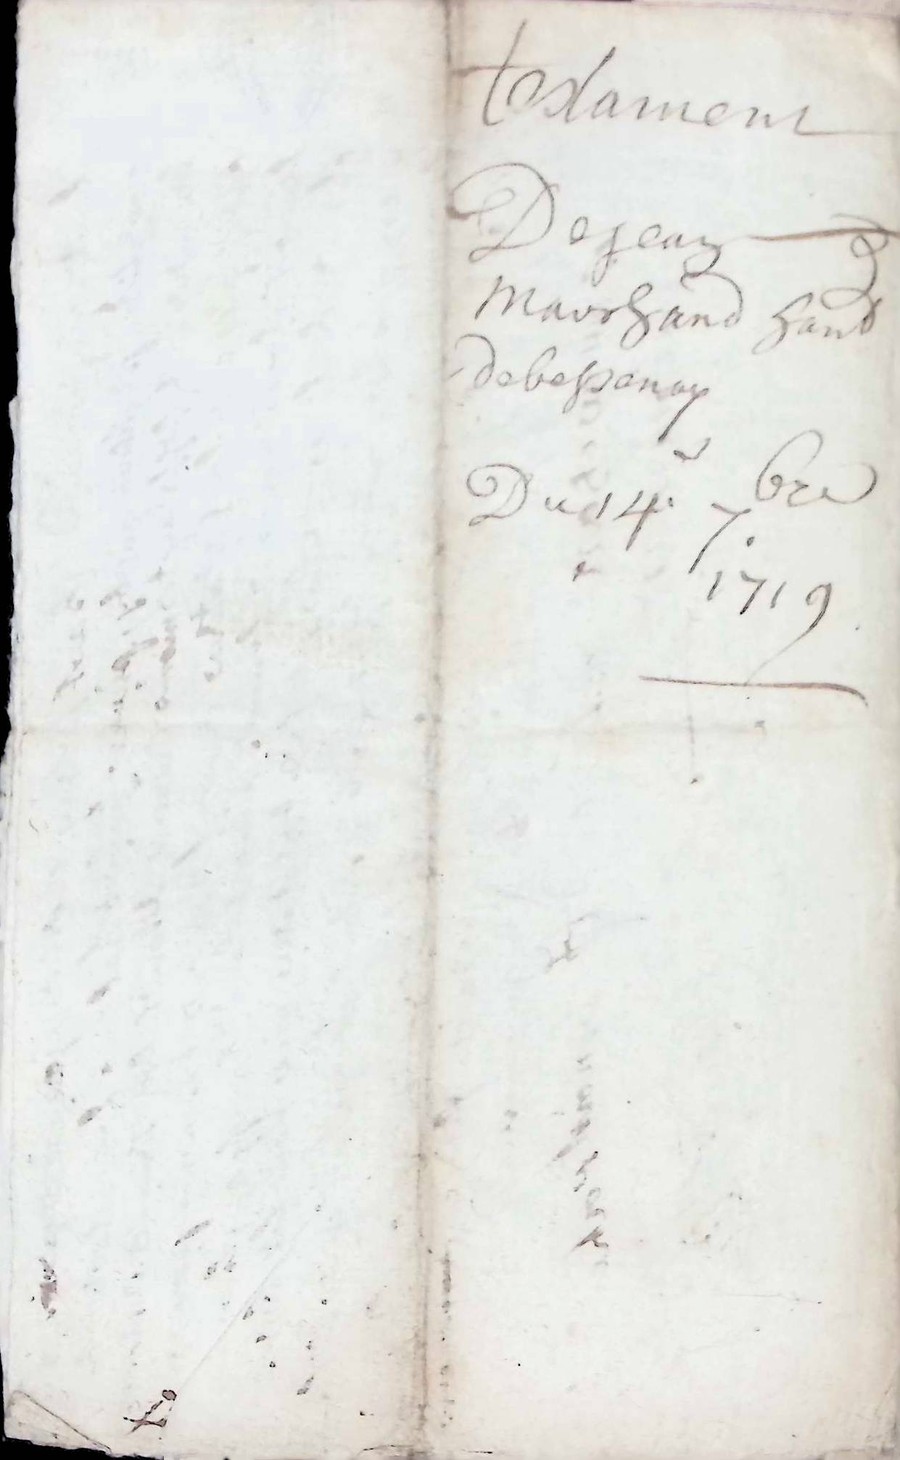 testament
De jean
Marchand hant
de bessenay
Du 14e 7bre
1719